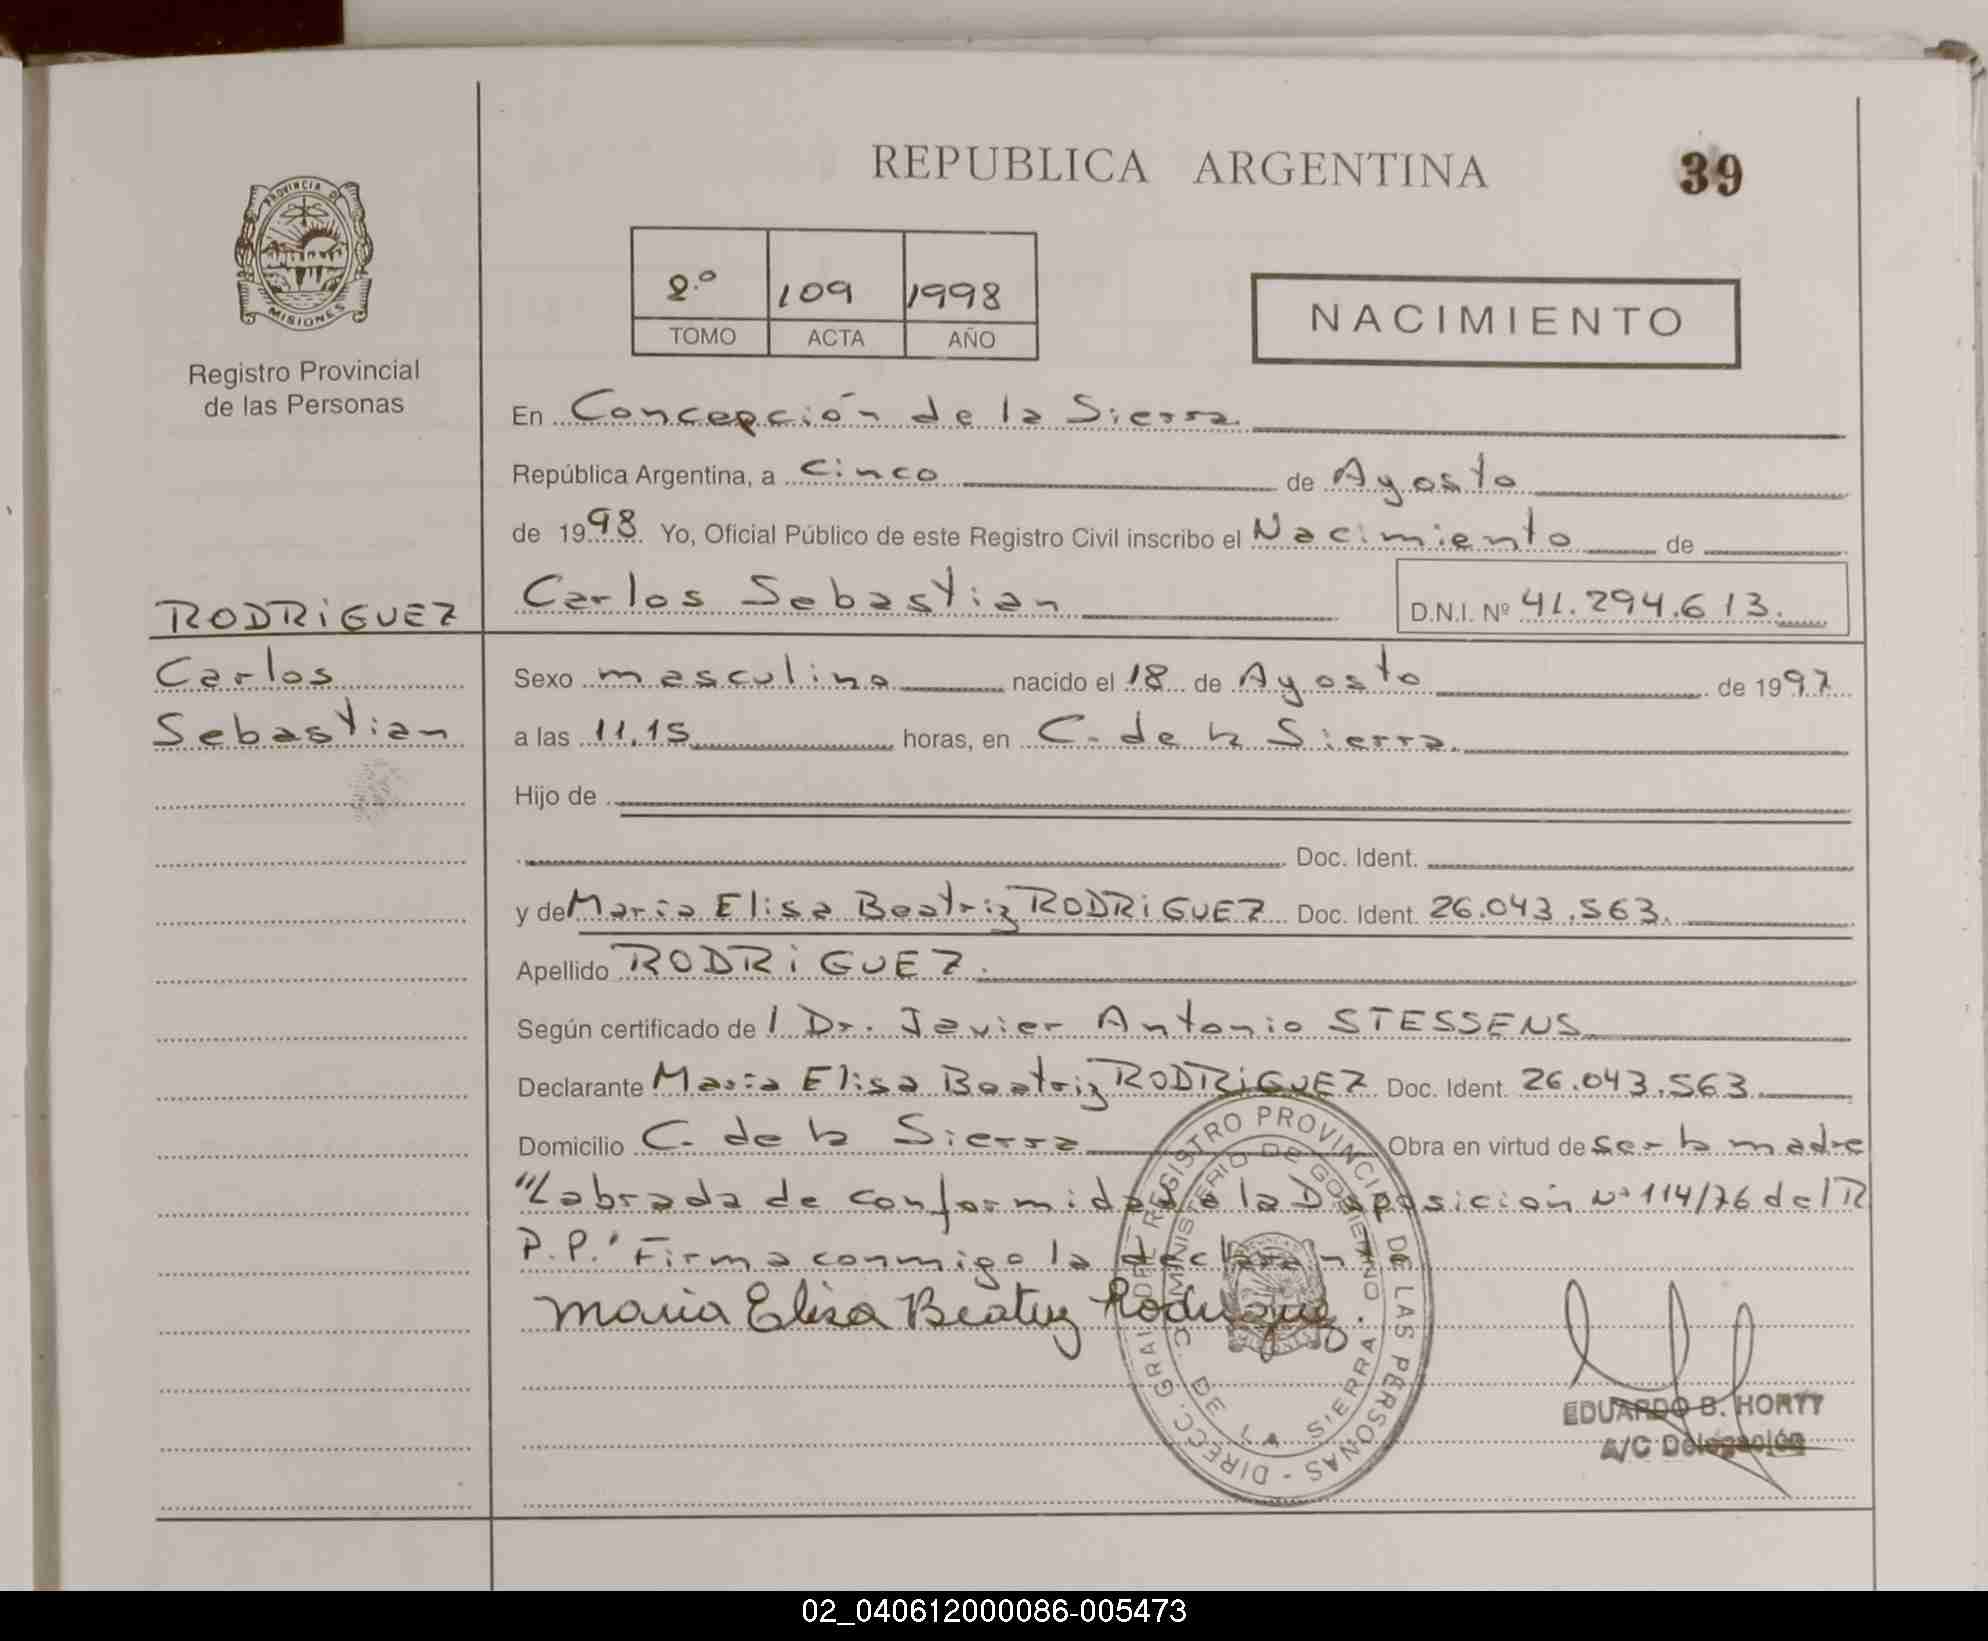 REPUBLICA ARGENTINA
39
PROVINCIA DE
MISIONES
Registro Provincial
de las Personas
2.º 109 1998
TOMO ACTA AÑO
NACIMIENTO
En Concepción de la Sierra
República Argentina, a cinco de Agosto
de 1998. Yo, Oficial Público de este Registro Civil inscribo el Nacimiento de
RODRIGUEZ
Carlos
Sebastian
Carlos Sebastian D.N.I. Nº 41.294.613.
Sexo masculino nacido el 18 de Agosto de 1997
a las 11,15 horas, en C. de la Sierra.
Hijo de
Doc. Ident.
y de Maria Elisa Beatriz RODRIGUEZ Doc. Ident. 26.043.563.
Apellido RODRIGUEZ.
Según certificado de l Dr. Javier Antonio STESSENS
Declarante Maria Elisa Beatriz RODRIGUEZ Doc. Ident. 26.043.563
Domicilio C. de la Sierra Obra en virtud de ser la madre
"Labrada de conformidad a la Disposición Nº 114/76 del R
P.P." Firma conmigo la declarante
Maria Elisa Beatriz Rodriguez
DIRECC. GRAL DEL REGISTRO PROVINCIAL DE LAS PERSONAS -
MINISTERIO DE GOBIERNO
C. DE LA SIERRA
EDUARDO B. HORTY
A/C Delegación
02_040612000086-005473